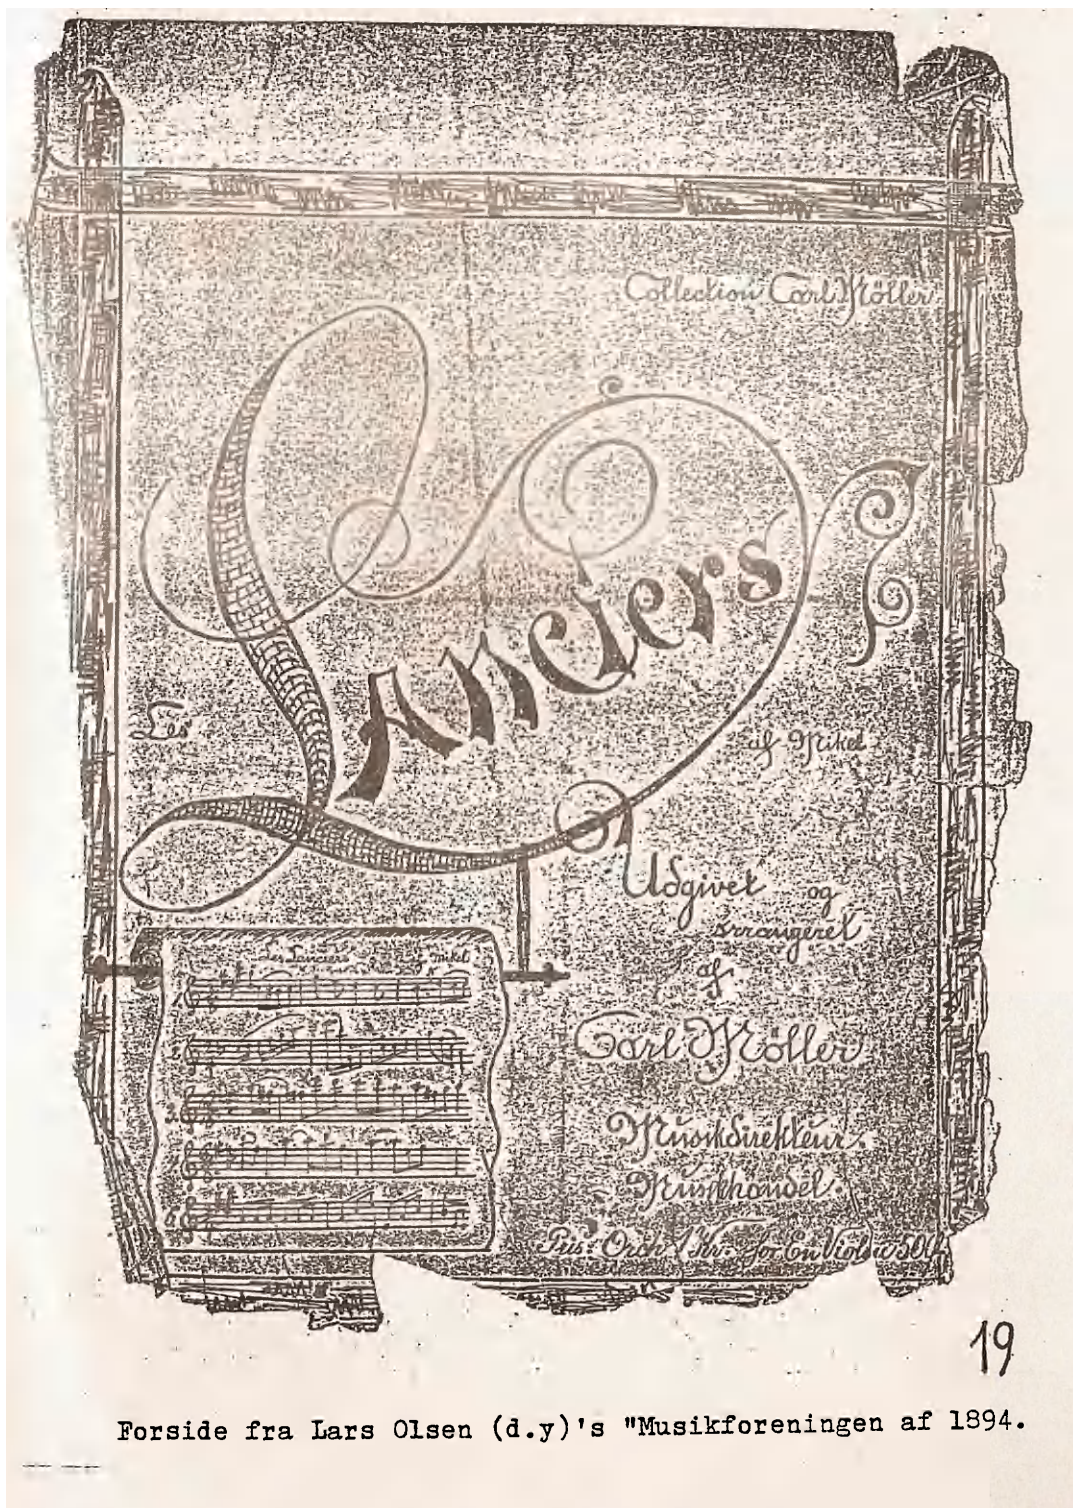 Collection Carl Möller
Les
Lanciers
af Mikel
Udgivet og
Arrangeret
af
Carl Möller
Musikdirekteur.
Musikhandel.
Pris: Orch 1 Kr. for En Violin 30
Les Lanciers af Mikel
1
2
3
4
19
Forside fra Lars Olsen (d.y)'s "Musikforeningen af 1894.